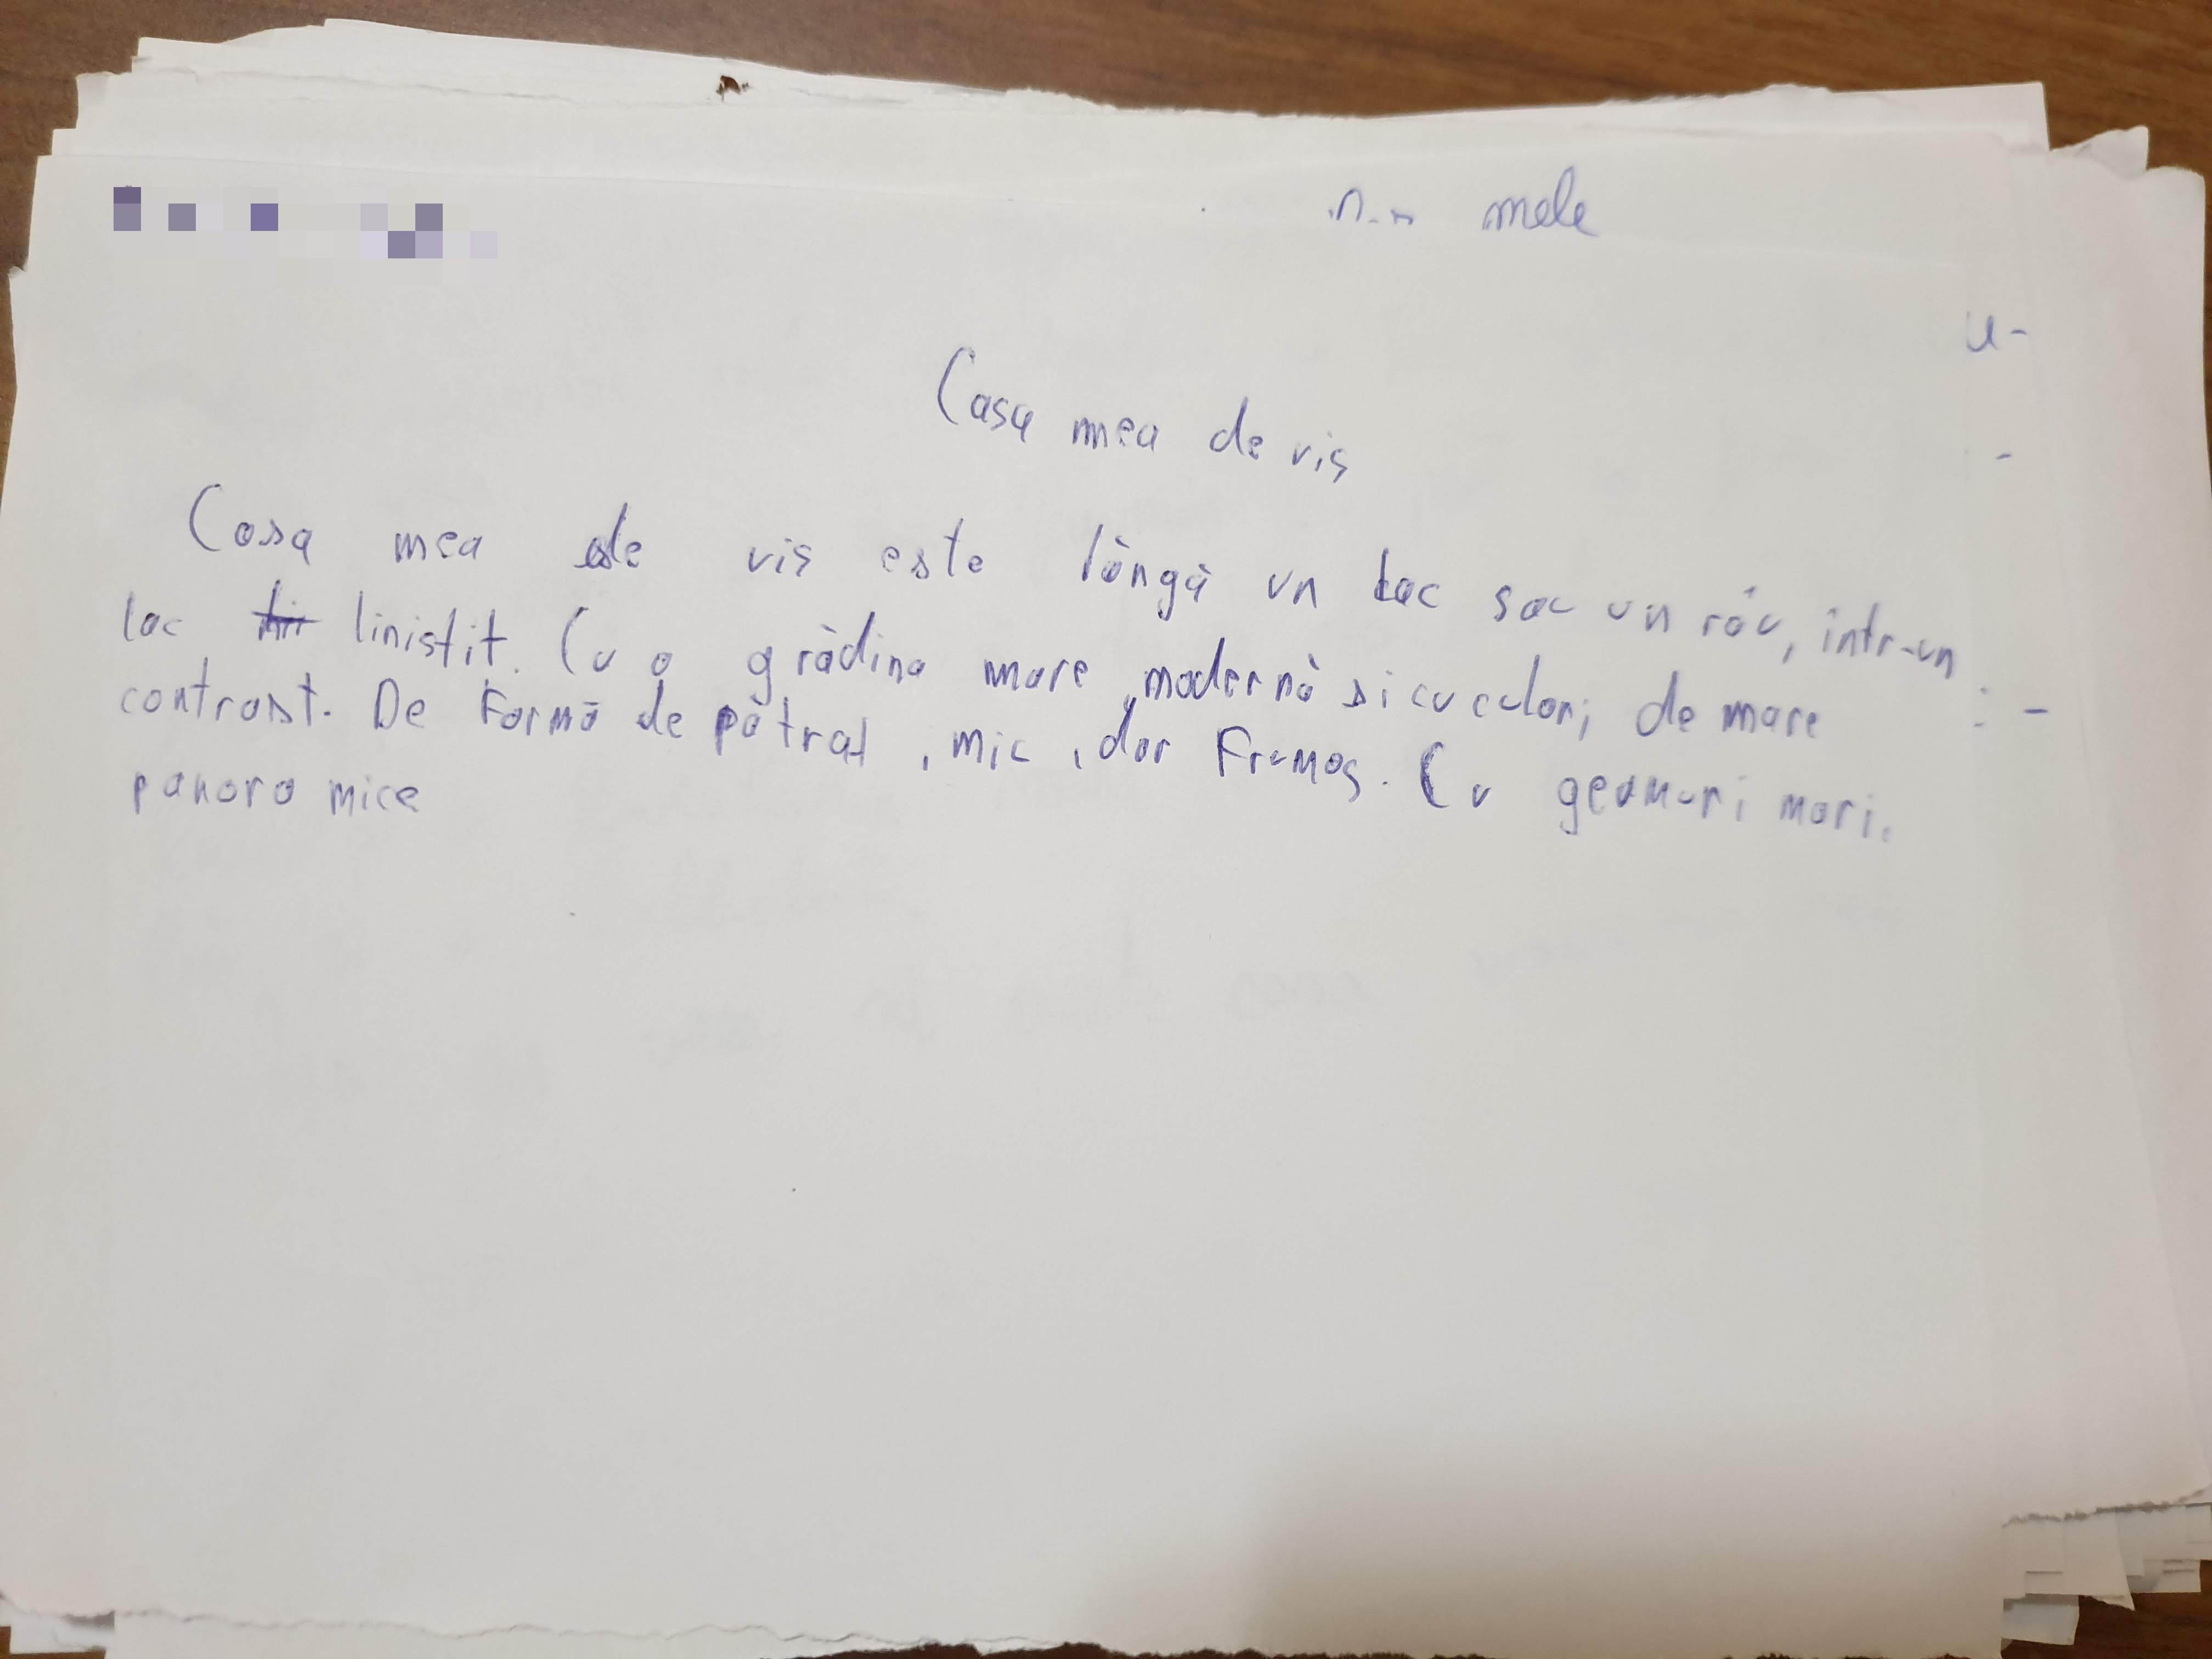 mele
Casa mea de vis
Casa mea de vis este lângă un lac sau un râu, într-un
loc linistit. Cu o grădina mare, modernă si cu culori de mare
contrast. De Formă de pătrat, mic, dar Frumos. Cu geamuri mari,
panora mice